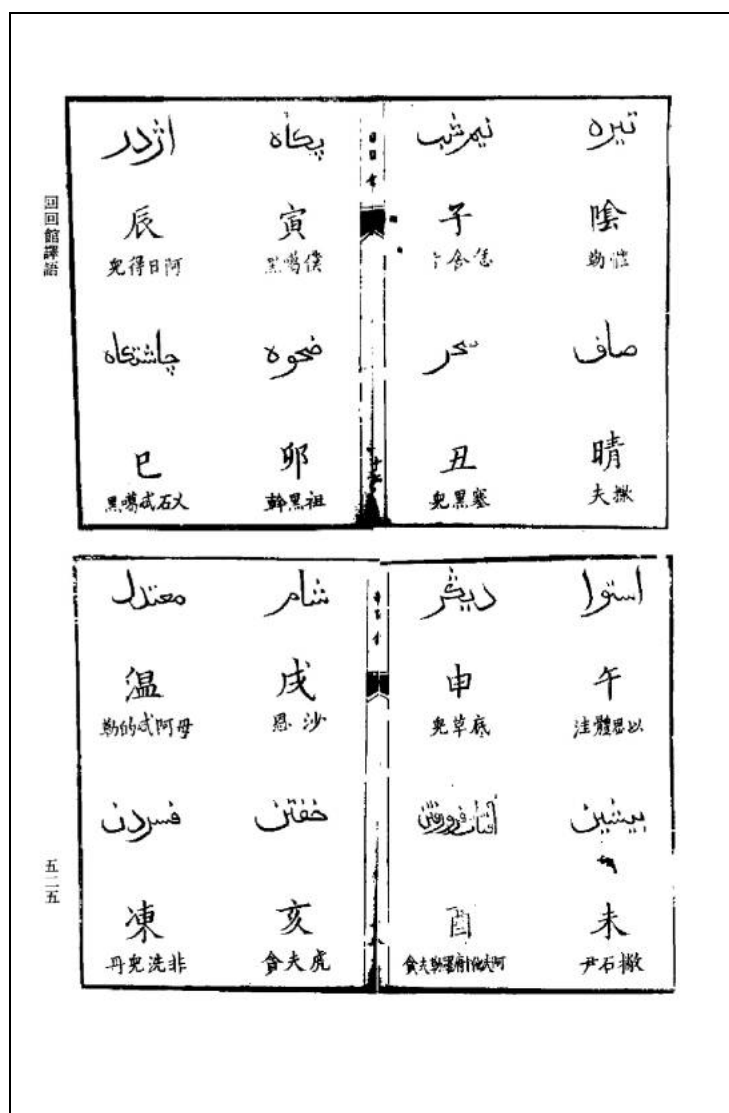 回回館譯語
تیره
陰
صاف
晴
撒夫
نیم شب
子
恁舍卜
سحر
丑
塞黑兒
پگاه
寅
僕噶黑
ضحوه
卯
祖黑斡
اژدر
辰
阿日得兒
چاشتگاه
巳
石忒噶黑
استوا
午
以思體洼
پیشین
未
撇石尹
دیگر
申
底草兒
آفتاب فرو رفتن
酉
شام
戌
沙恩
خفتن
亥
虎夫會
معتدل
温
母阿忒的勒
فسردن
凍
非洗兒丹
五二五